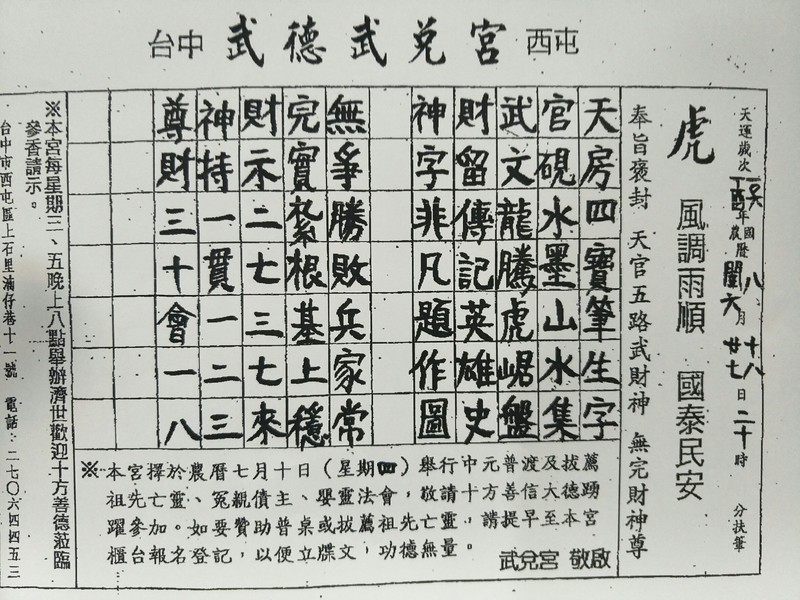 台中 武德武兌宮 西屯
天運歲次丁酉年國曆八月十八日二十時 分扶筆
農閏六廿七
虎 風調雨順 國泰民安
奉旨褒封 天官五路武財神 無完財神尊
天房四寶筆生字
官硯水墨山水集
武文龍騰虎踞盤
財留傳記英雄史
神字非凡題作圖
無爭勝敗兵家常
完實紮根基上穩
財示二七三七來
神持一貫一二三
尊財三十會一八
※本宮擇於農曆七月十日（星期四）舉行中元普渡及拔薦
祖先亡靈、冤親債主、嬰靈法會，敬請十方善信大德踴
躍參加。如要贊助普桌或拔薦祖先亡靈，請提早至本宮
櫃台報名登記，以便立牒文，功德無量。
武兌宮 敬啟
※本宮每星期三、五晚上八點舉辦濟世歡迎十方善德蒞臨
參香請示。
台中市西屯區上石里湳仔巷十一號 電話：二七〇六四四五三